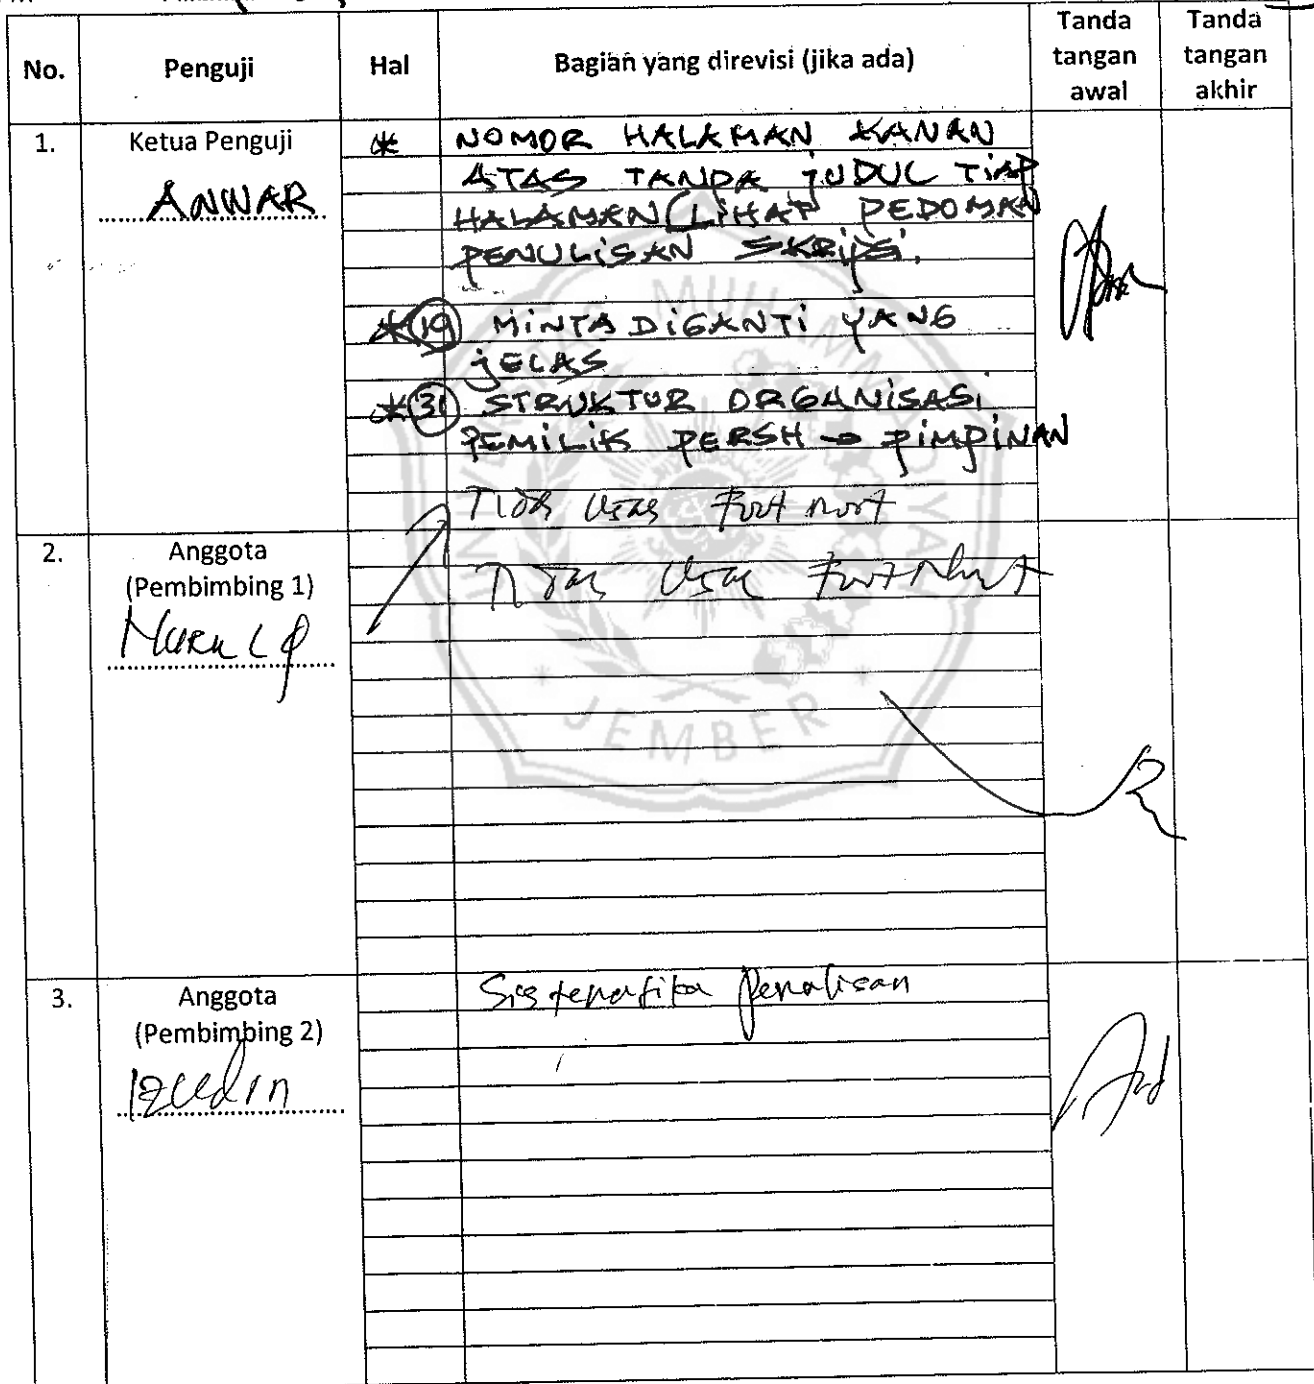 No. Penguji Hal Bagian yang direvisi (jika ada) Tanda tangan awal Tanda tangan akhir
1. Ketua Penguji
ANWAR
* NOMOR HALAMAN KANAN
ATAS TANPA JUDUL TIAP
HALAMAN (LIHAT PEDOMAN
PENULISAN SKRIPSI.
*(19) MINTA DIGANTI YANG
JELAS
*(31) STRUKTUR ORGANISASI
PEMILIK PERSH → PIMPINAN
2. Anggota
(Pembimbing 1)
3. Anggota
(Pembimbing 2)
Sistematika Penulisan
UNIVERSITAS MUHAMMADIYAH
JEMBER